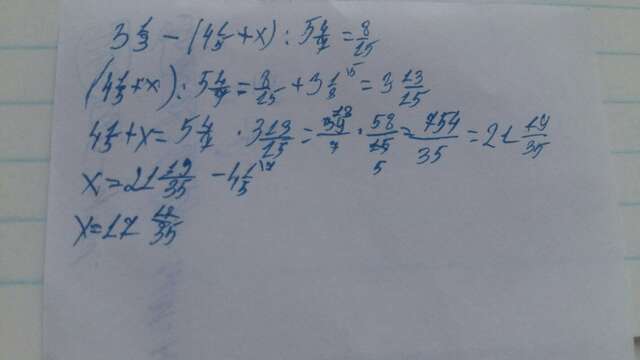 3 1/3 - (4 1/5 + x) : 5 4/7 = 8/15
(4 1/5 + x) : 5 4/7 = 8/15 + 3 1/3 = 3 13/15
4 1/5 + x = 5 4/7 · 3 13/15 = 39/7 · 58/15 = 754/35 = 21 19/35
x = 21 19/35 - 4 1/5
x = 17 12/35